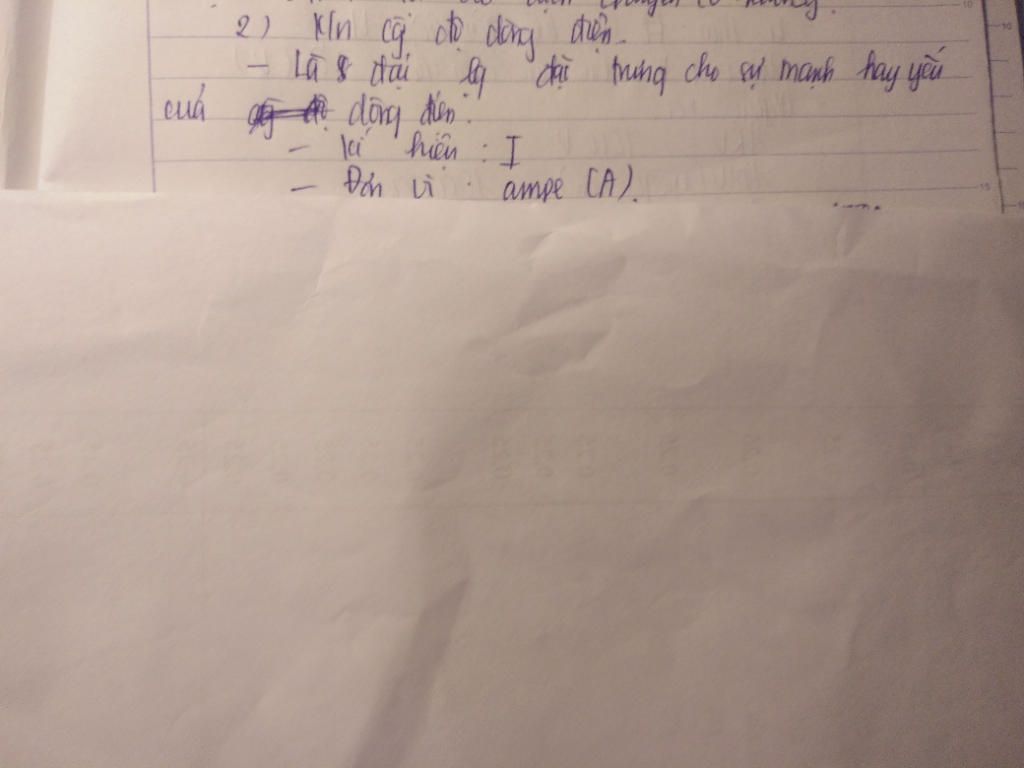 2) K/n cg độ dòng điện.
- Là đại lg đặc trưng cho sự mạnh hay yếu
của dòng điện.
- Kí hiệu : I
- Đơn vị : ampe (A).